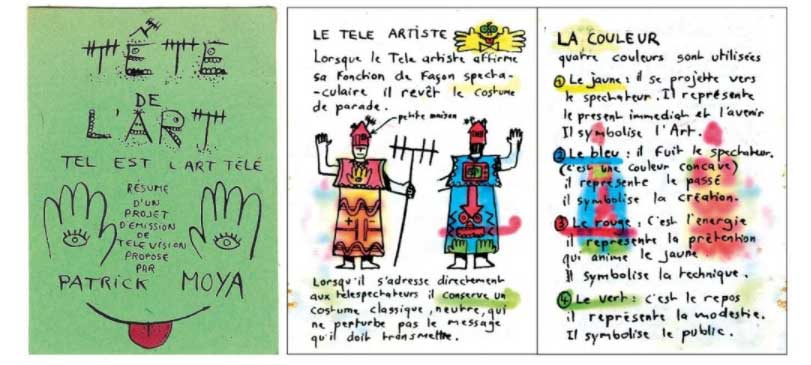 TÊTE
DE
L'ART
TEL EST L'ART TÉLÉ
RÉSUMÉ
D'UN
PROJET
D'ÉMISSION
DE
TELEVISION
PROPOSE
PAR
PATRICK MOYA
LE TELE ARTISTE
Lorsque le Tele artiste affirme
sa Fonction de Façon specta-
-culaire il revêt le costume
de parade.
petite maison
Lorsqu'il s'adresse directement
aux telespectateurs il conserve un
costume classique, neutre, qui
ne perturbe pas le message
qu'il doit transmettre.
LA COULEUR
quatre couleurs sont utilisées
1 Le jaune : il se projette vers
le spectateur. Il représente
le present immediat et l'avenir
Il symbolise l'Art.
2 Le bleu : il Fuit le spectateur.
(c'est une couleur concave)
il représente le passé
il symbolise la création.
3 Le rouge : C'est l'énergie
il représente la prétention
qui anime le jaune
Il symbolise la technique.
4 Le vert : c'est le repos
il représente la modestie.
Il symbolise le public.